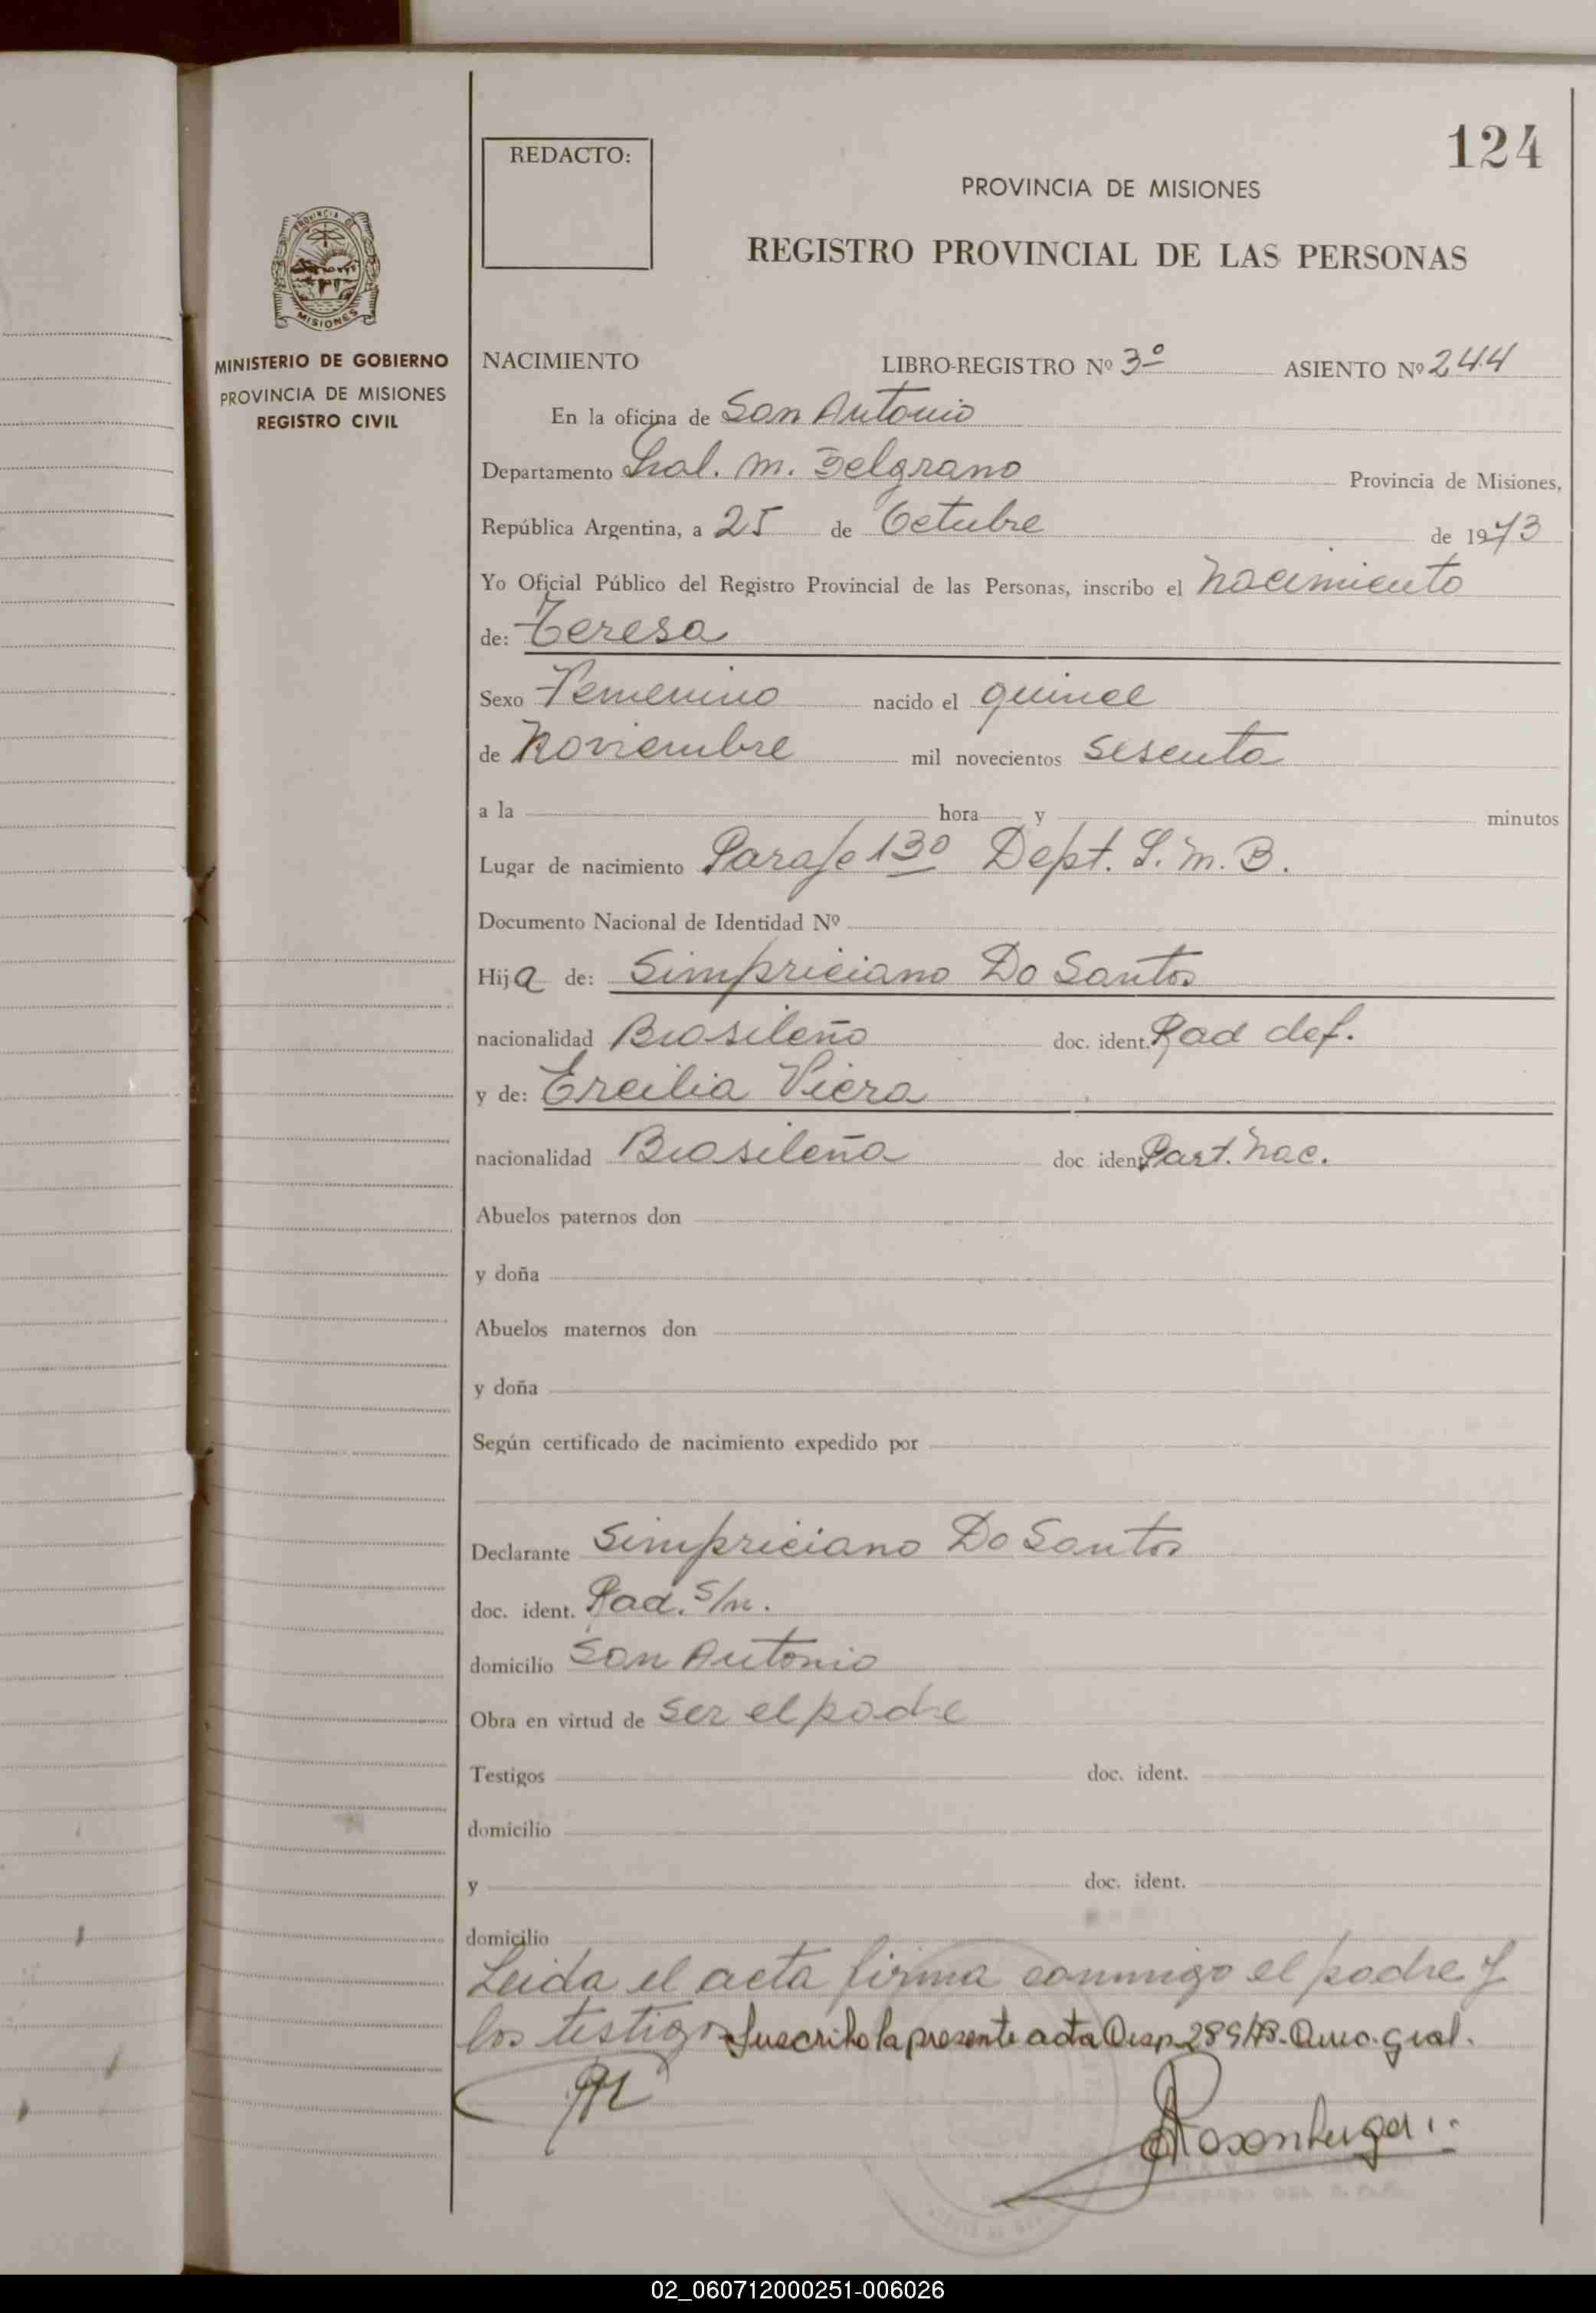 124
REDACTO:
PROVINCIA DE MISIONES
REGISTRO PROVINCIAL DE LAS PERSONAS
PROVINCIA DE
MISIONES
MINISTERIO DE GOBIERNO
PROVINCIA DE MISIONES
REGISTRO CIVIL
NACIMIENTO LIBRO-REGISTRO Nº 3º ASIENTO Nº 244
En la oficina de San Antonio
Departamento Gral. M. Belgrano Provincia de Misiones,
República Argentina, a 25 de Octubre de 1973
Yo Oficial Público del Registro Provincial de las Personas, inscribo el nacimiento
de: Teresa
Sexo Femenino nacido el quince
de Noviembre mil novecientos sesenta
a la hora y minutos
Lugar de nacimiento Paraje 130 Dept. G. M. B.
Documento Nacional de Identidad Nº
Hija de: Simpriciano Do Santos
nacionalidad Brasileño doc. ident. Rad def.
y de: Ercilia Viera
nacionalidad Brasileña doc ident. Part. Nac.
Abuelos paternos don
y doña
Abuelos maternos don
y doña
Según certificado de nacimiento expedido por
Declarante Simpriciano Do Santos
doc. ident. Rad. s/n.
domicilio San Antonio
Obra en virtud de ser el padre
Testigos doc. ident.
domicilio
y doc. ident.
domicilio
Leida el acta firma conmigo el padre y
los testigos Suscribo la presente acta Disp. 289/78 gral.
02_060712000251-006026